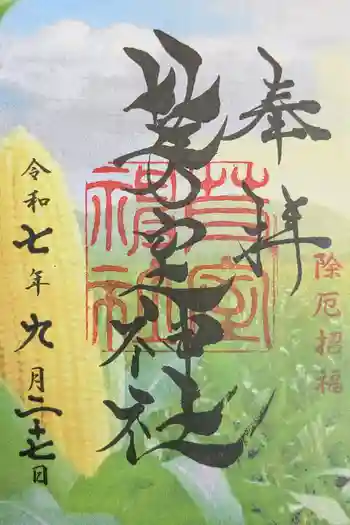 奉拝
除厄招福
芽室神社
芽室
神社
令和七年九月二十七日